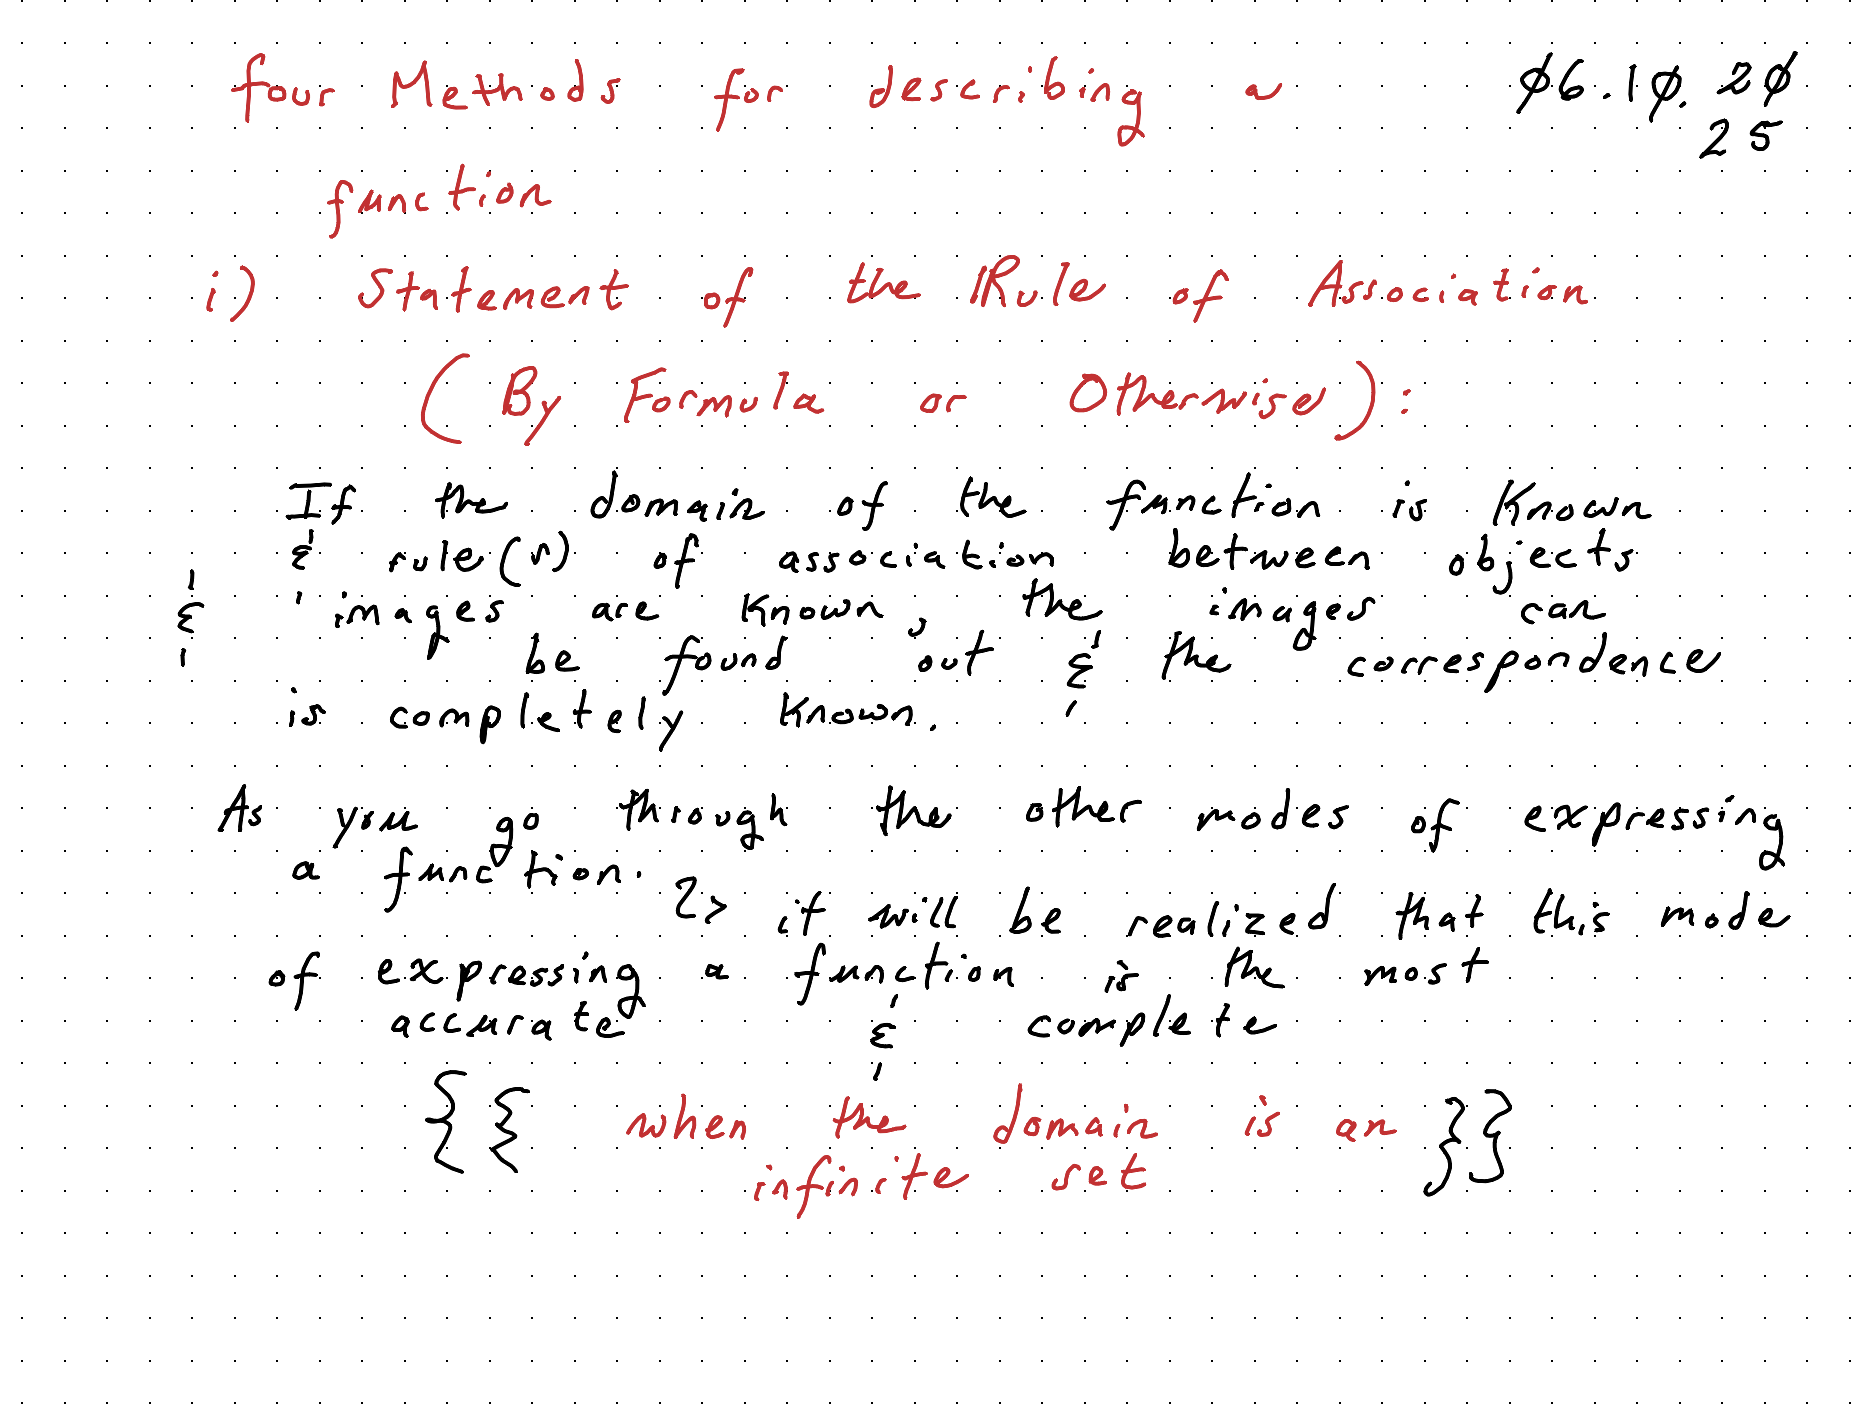 four Methods for describing a
function
06.10.20
25
i) Statement of the Rule of Association
(By Formula or Otherwise):
If the domain of the function is known
& rule(s) of association between objects
& images are known, the images can
be found out & the correspondence
is completely known.
As you go through the other modes of expressing
a function.
↳ it will be realized that this mode
of expressing a function is the most
accurate & complete
{{ when the domain is an }}
infinite set